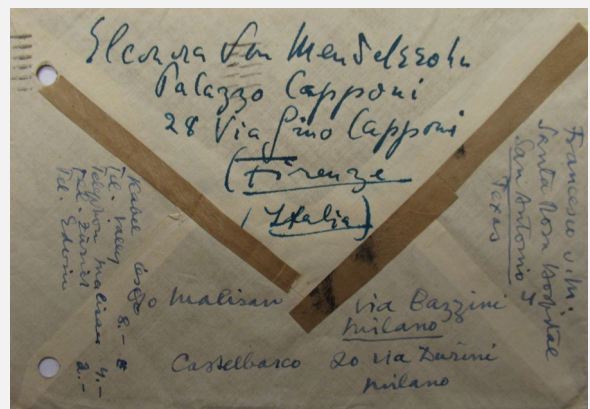 Eleonora von Mendelssohn
Palazzo Capponi
28 Via Gino Capponi
(Firenze
(Italia)
Francesco v. M.
Santa Hospital
San Antonio 4
Texas
Tel. Valley 8.-
Telephon Malisan 4.-
Tel. Zürich 2.-
Tel.
Malisan
Via Bazzini
Milano
Castelbarco 20 via Durini
Milano